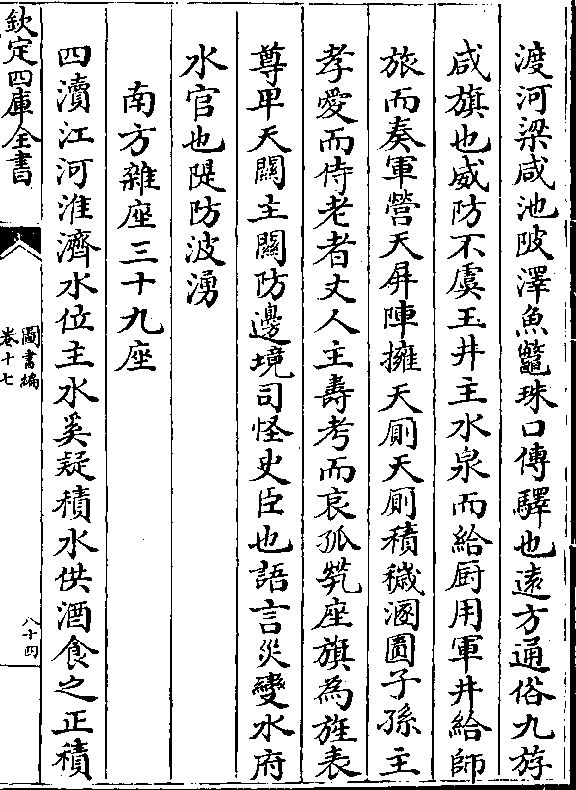 渡河梁咸池陂澤魚鼈珠口傳驛也逺方通俗九斿
咸旗也威防不虞玉井主水泉而給厨用軍井給師
旅而奏軍營天屏陣擁天厠天厠積穢溷圊子孫主
孝愛而侍老者丈人主壽考而哀孤煢座旗為旌表
尊卑天關主關防邊境司怪史臣也語言災變水府
水官也隄防波湧
南方雜座三十九座
四瀆江河淮濟水位主水奚疑積水供酒食之正積
欽定四庫全書
圖書編
卷十七
八十四